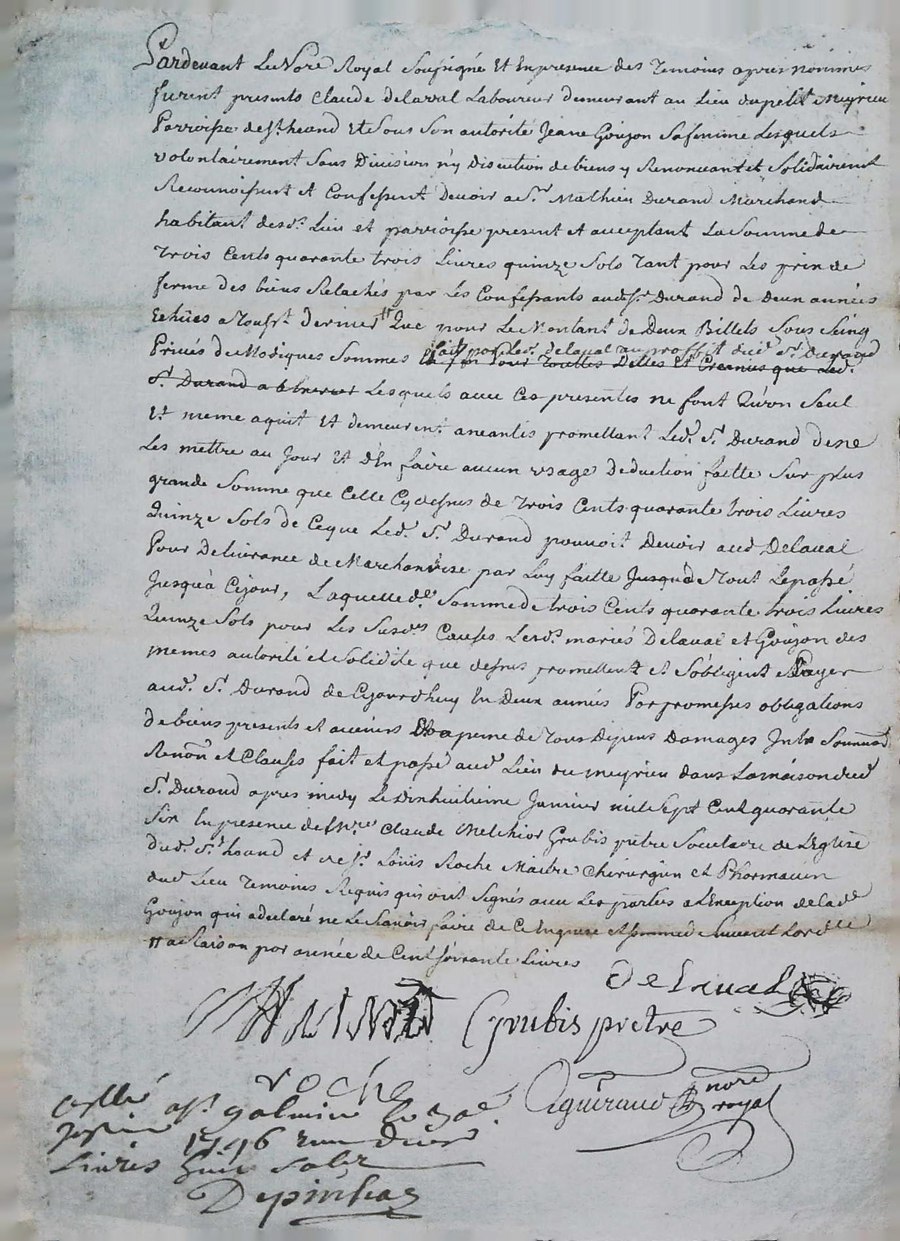 Pardevant Le Nore Royal Soussigné Et En presence des Temoins apres nommés
furent presents Claude delaval Laboureur demeurant au Lieu du petit Meyrieu
Parroisse de St heand Et de Sous Son autorité Jeane Goujon Sa femme Lesquels
volontairement Sans Division n'y Discution de biens y Renoncant et Solidairemt
Reconnoissent et Confessent Devoir a Sr. Mathieu Durand Marchand
habitant desd. Lieu et parroisse present et acceptant La Somme de
Trois Cents quarante trois Livres quinze Sols Tant pour Les prix de
ferme des biens Relachés par Les Confessants aud. Sr. Durand de deux années
Echües a Toust. dernier # Que pour Le Montant de Deux Billets Sous Seing
Privés de Modiques Sommes fait par Led. delaval au proffit dud. Sr. Durand
Sr. Durand Lesquels avec Ces presentes ne font Qu'on Seul
Et meme aquit Et demeurent aneantis promettant Led. Sr. Durand de ne
Les mettre au Jour Et d'En faire aucun Usage Deduction faitte Sur plus
grande Somme que Celle Cydessus de Trois Cents quarante trois Livres
Quinze Sols de Ceque Led. Sr. Durand pouvoit Devoir aud Delaval
Pour Delivrance de Marchandise par Luy faitte Jusqua Tout Lepassé
Jusqu'à Cejour, Laquelle de. Somme de trois Cents quarante trois Livres
Quinze Sols pour Les Susds. Causes Lesds. mariés Delaval et Goujon des
memes autorité et Solidité que dessus promettent et S'obligent Payer
aud. Sr. Durand de Cejourdhuy En Deux années Par promesses obligations
de biens presents et avenirs Et a peine de Tous Depens Damages
Renon et Clauses fait et passé aud Lieu du meyrieu dans La maison dud
Sr. Durand apres midy Le Dixhuitieme Janvier mil Sept Cent quarante
Six En presence de Mre. Claude Melchior Grubis prêtre Societaire de L'Eglise
dud. St. heand et de Sr. Louis Roche Maitre Chirurgien et Pharmacien
dud Lieu Temoins Requis qui ont Signés avec Les parties a L'Exception de lade
Goujon qui a declaré ne Le Scavoir faire de Ce Enquise et Sommée
# a Raison par année de Cent soixante Livres
De Laval
Grubis prêtre
roche
Aguiraud nore royal
1746
Livres huit Sols